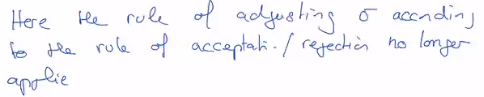 Here the rule of adjusting σ according
to the rule of acceptati. / rejection no longer
applie